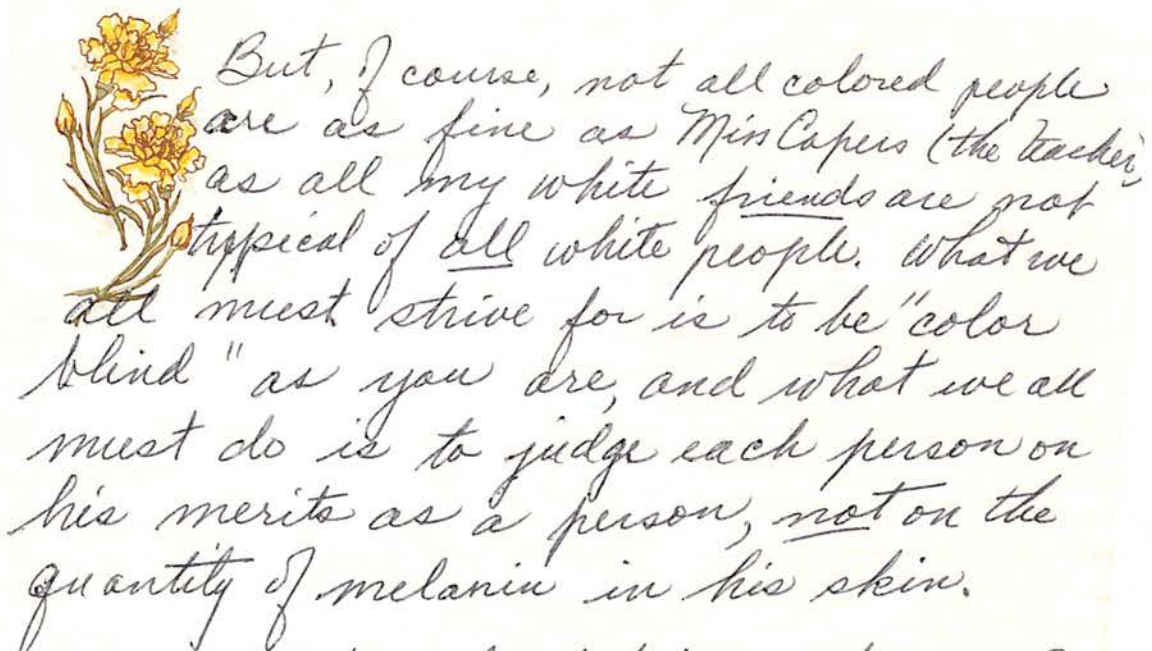 But, of course, not all colored people
are as fine as Miss Capers (the teacher,
as all my white friends are not
typical of all white people. What we
all must strive for is to be "color
blind" as you are, and what we all
must do is to judge each person on
his merits as a person, not on the
quantity of melanin in his skin.